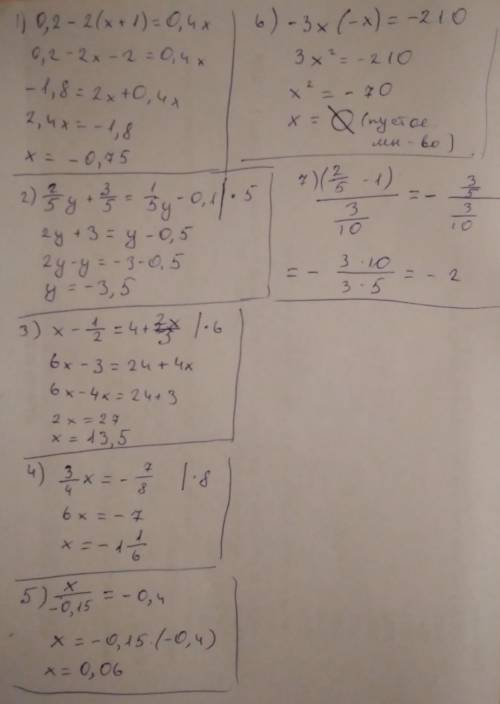 1) 0,2 - 2(x+1) = 0,4x
0,2 - 2x - 2 = 0,4x
-1,8 = 2x + 0,4x
2,4x = -1,8
x = -0,75
2) 2/5 y + 3/5 = 1/5 y - 0,1 | · 5
2y + 3 = y - 0,5
2y - y = -3 - 0,5
y = -3,5
3) x - 1/2 = 4 + 2x/3 | · 6
6x - 3 = 24 + 4x
6x - 4x = 24 + 3
2x = 27
x = 13,5
4) 3/4 x = - 7/8 | · 8
6x = -7
x = -1 1/6
5) x/-0,15 = -0,4
x = -0,15 · (-0,4)
x = 0,06
6) -3x (-x) = -210
3x² = -210
x² = -70
x = ∅ (пустое
мн-во)
7) (2/5 - 1) / (3/10) = - (3/5) / (3/10)
= - 3·10 / 3·5 = -2